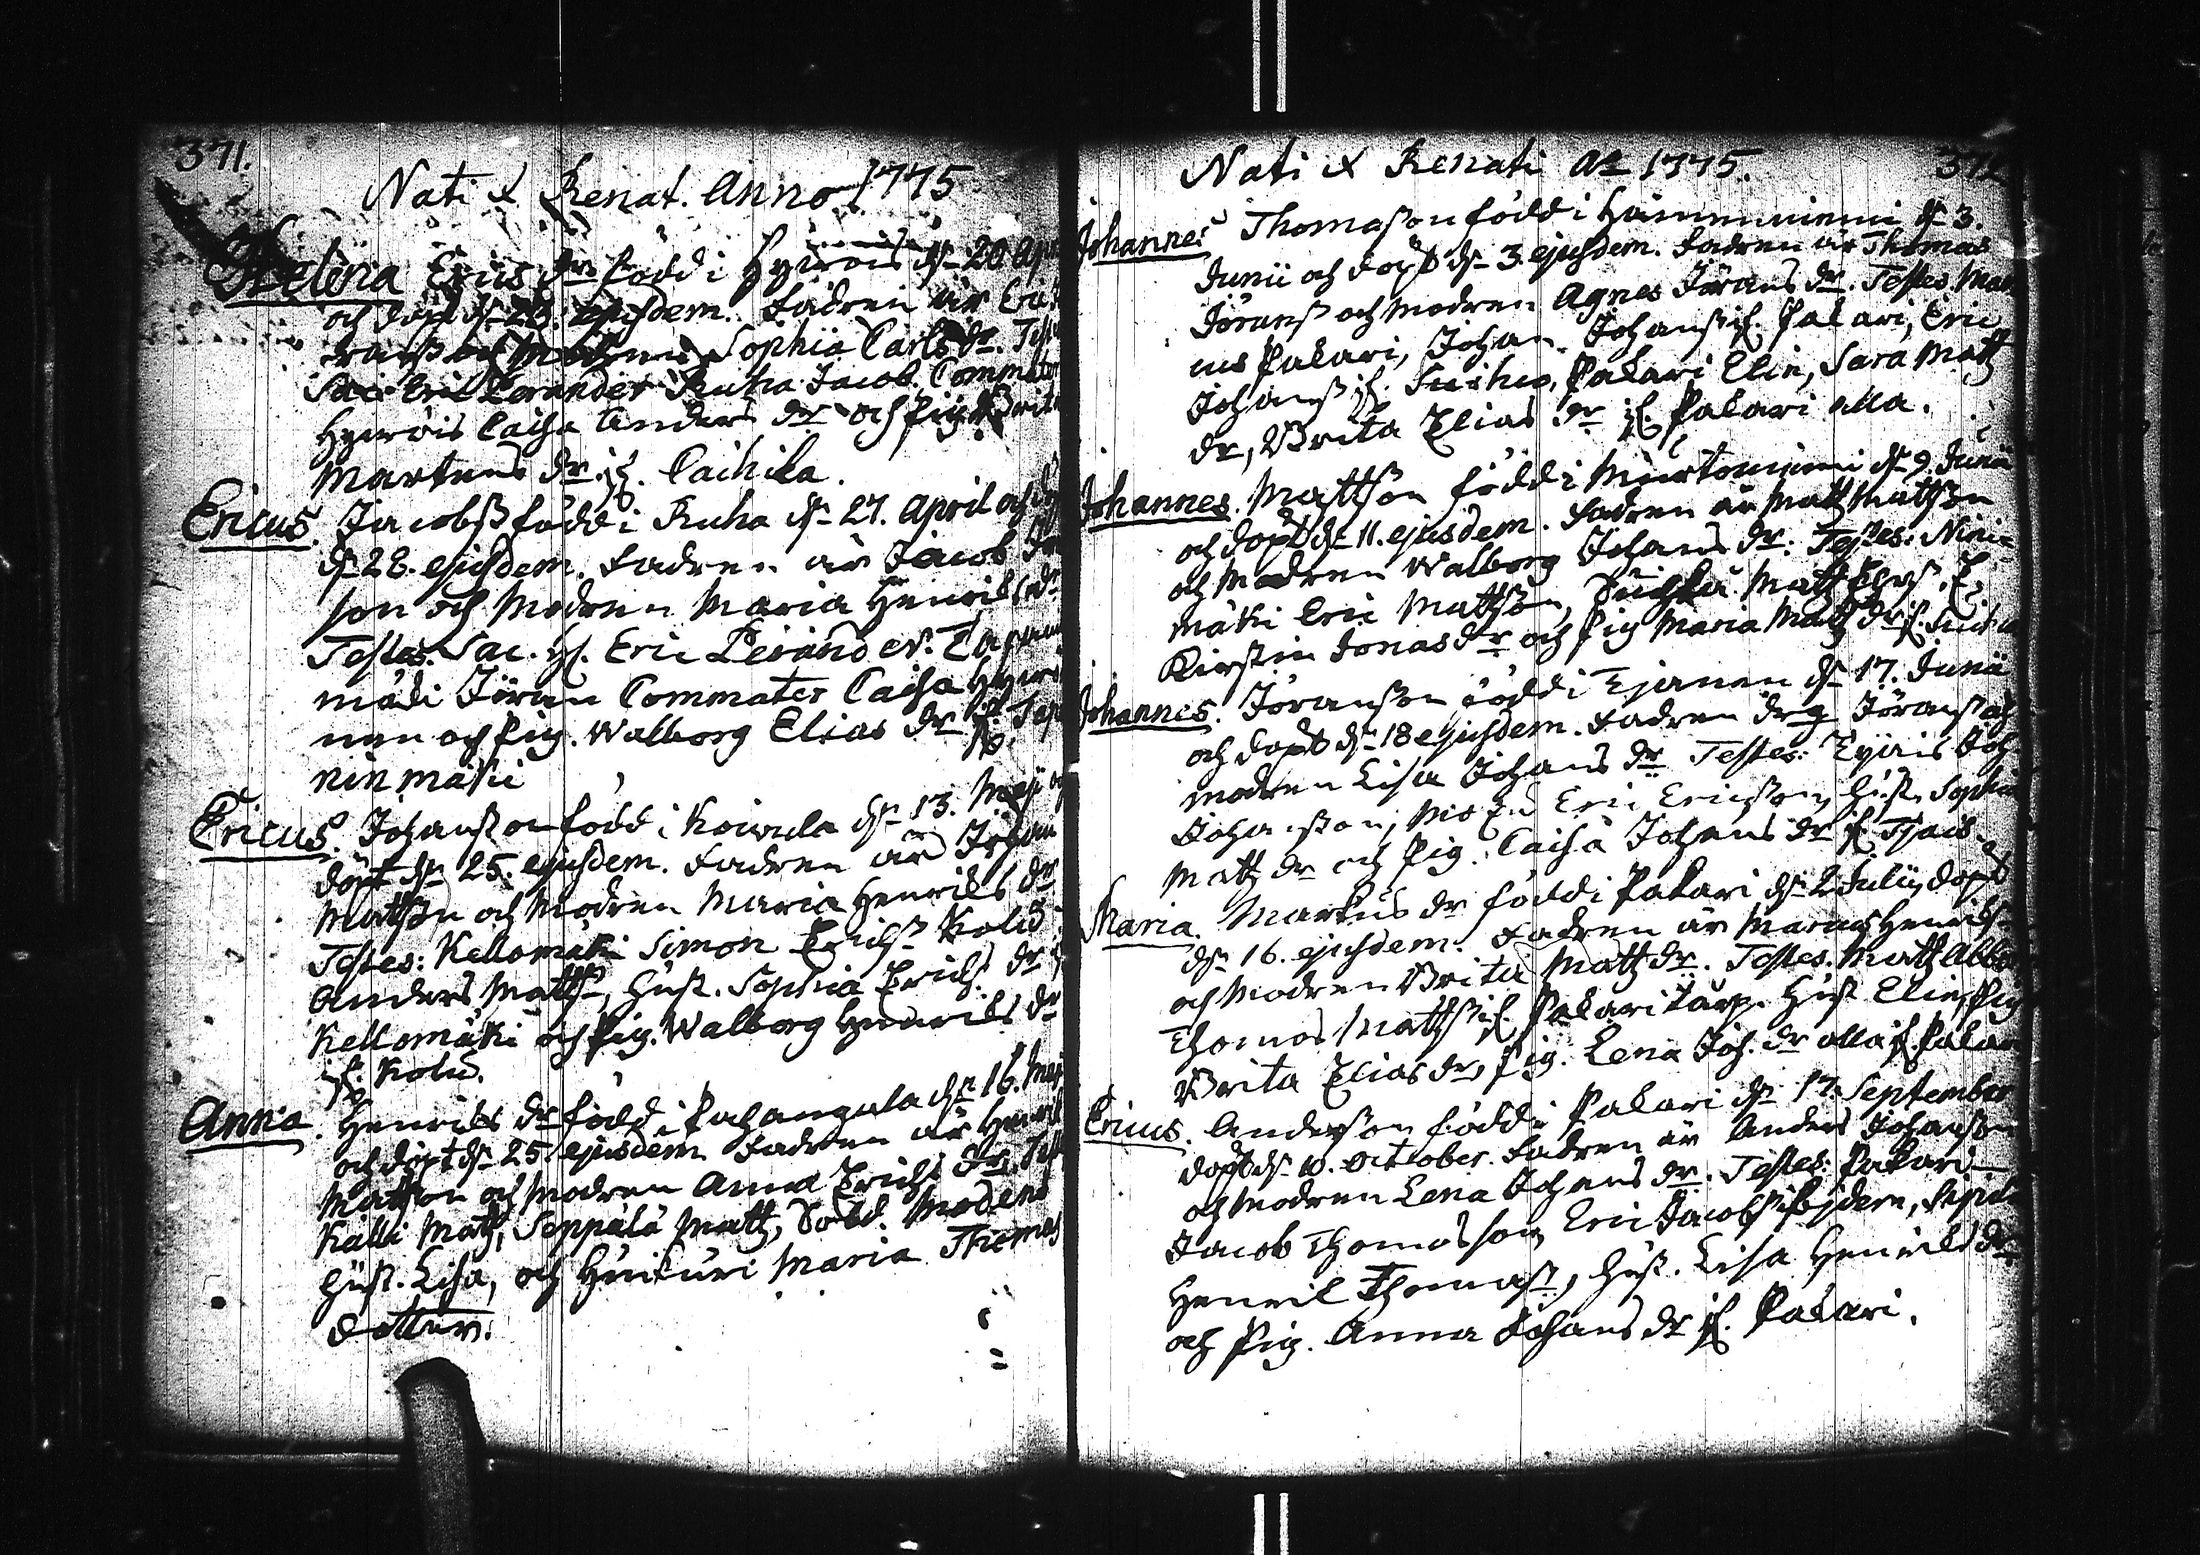 371.
Nati & Renat. Anno 1775
Helena Erics dr. född i Hyvöis dn 20 Apr
och döpt dn 28. ejusdem. Fadren är Eric
och Modren Sophia Carls dr. Test
Sac. Eric Lerander Ruha Jacob. Commater
Hyvöis Caisa Anders dr och Pig. Brita
Mårtens dr if. Caihila.
Ericus. Jacobss född i Ruha dn 27. April och
dn 28. ejusdem. Fadren är Jacob
son och Modren Maria Henrics dr
Testes. Sac. Eric Lerander.
mäki Jöran Commater Caisa
nen och Pig. Walborg Elias dr if. Tep
nin mäki
Ericus. Johansson född i Koivula dn 13. Maji
döpt dn 25. ejusdem. Fadren är Johan
Matsson och Modren Maria Henrics dr
Testes: Kellomäki Simon Ericss Kolu
Anders Matts, Hust. Sophia Erics dr
Kellomäki och Pig. Walborg Henrics dr
if. Kolu.
Anna. Henrics dr född i Pahangala dn 16. Maji
och döpt dn 25. ejusdem Fadren är Henric
Mattson och Modren Anna Erics dr. Test
Kalli Matts, Seppälä Matts, Sold. Modens
Hust. Lisa, och Huikuri Maria Thomas
dotter.
Nati & Renati Ao 1775. 372
Johannes Thomasson född i Hämenniemi dn 3.
Junii och döpt dn 3. ejusdem. Fadren är Thomas
Jöranss och Modren Agnes Jörans dr. Testes. Mar
cus Pakari, Johan Johanss if. Pakari, Eric
Johanss if. Suihko, Pakari Elin, Sara Matts
dr, Brita Elias dr if. Pakari alla.
Johannes. Mattson född i Murtoniemi dn 9. Junii
och döpt dn 11. ejusdem. Fadren är Matts Mattson
och Modren Walborg Johans dr. Testes: Nini
mäki Eric Mattson, Matts
Kirstin Jonas dr och Pig Maria Matts dr if.
Johannes. Jöransson född i Ejanen dn 17. Junii
och döpt dn 18 ejusdem. Fadren drg Jöranss och
modren Lisa Johans dr Testes: Ejais Joh
Johansson, Eric Ericsson, Hust. Sophia
Matts dr och Pig. Caisa Johans dr if. Ejais.
Maria. Markus dr född i Pakari dn 2 Julii, döpt
dn 16. ejusdem. Fadren är Marcus Henrics
och Modren Brita Matts dr. Testes. Matts
Thomas Matts if. Pakari Hust Elin, Pig
Brita Elias dr, Pig. Lena Joh. dr alla if. Pakari
Ericus. Andersson född i Pakari dn 17. September
döpt dn 10. October. Fadren är Anders Johansson
och Modren Lena Johans dr. Testes: Pakari
Jacob Thomasson, Eric Jacobss
Henric Thomass, Hust. Lisa Henrics dr
och Pig. Anna Johans dr if. Pakari.